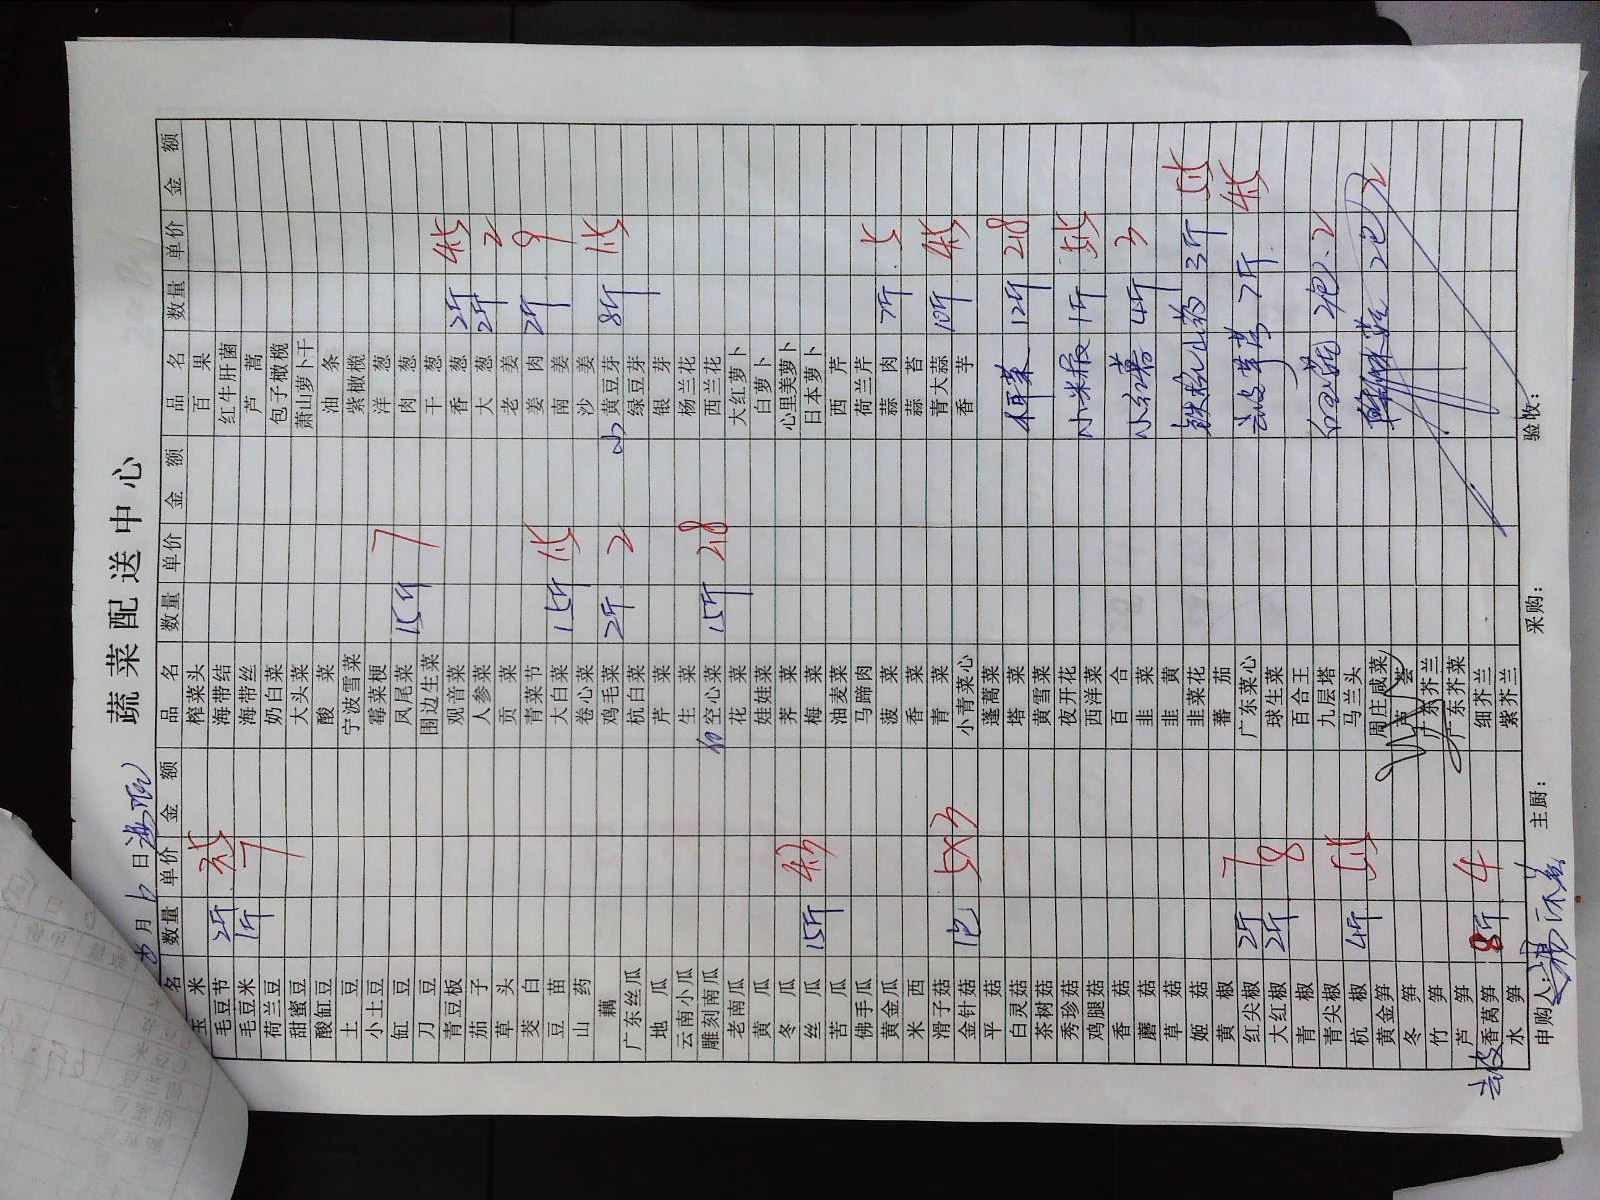 蔬菜配送中心
月 日
名 数量 单价 金额 品名 数量 单价 金额 品名 数量 单价 金额
玉米 榨菜头 百果
毛豆节 2斤 海带结 红牛肝菌
毛豆米 1斤 7 海带丝 芦蒿
荷兰豆 奶白菜 包子橄榄
甜蜜豆 大头菜 萧山萝卜干
酸缸豆 酸菜 油条
土豆 宁波雪菜 紫橄榄
小土豆 霉菜梗 洋葱
缸豆 凤尾菜 15斤 7 肉葱
刀豆 围边生菜 干葱
青豆板 观音菜 香葱 2斤 4.5
茄子 人参菜 大葱 2斤 2
草头 贡菜 老姜
茭白 青菜节 姜肉 2斤 9
豆苗 大白菜 15斤 1.5 南姜
山药 卷心菜 沙姜
藕 鸡毛菜 2斤 2 小黄豆芽 8斤 1.5
广东丝瓜 杭白菜 绿豆芽
地瓜 芹菜 银芽
云南小瓜 生菜 杨兰花
雕刻南瓜 空心菜 15斤 2.8 西兰花
老南瓜 花菜 大红萝卜
黄瓜 娃娃菜 白萝卜
冬瓜 荠菜 心里美萝卜
丝瓜 15斤 梅菜 日本萝卜
苦瓜 油麦菜 西芹
佛手瓜 马蹄肉 荷兰芹
黄金瓜 菠菜 蒜肉 7斤 5
米西 香菜 蒜苔
滑子菇 青菜 青大蒜 10斤 4.5
金针菇 1包 小青菜心 香芋
平菇 蓬蒿菜
白灵菇 塔菜 12斤 2.8
茶树菇 黄雪菜
秀珍菇 夜开花 小米椒 1斤 5.5
鸡腿菇 西洋菜
香菇 百合 小红薯 4斤 3
蘑菇 韭菜
草菇 韭黄 铁棍山药 3斤 5.5
姬菇 韭菜花
黄椒 蕃茄 7斤 4.5
红尖椒 2斤 7 广东菜心
大红椒 2斤 8 球生菜
青椒 百合王 2包 2
青尖椒 九层塔
杭椒 4斤 5.5 马兰头 2包 2
黄金笋 周庄咸菜
冬笋 芦荟
竹笋 广东芥兰
芦笋 广东芥菜
香莴笋 8斤 4 细芥兰
水笋 紫芥兰
申购人: 主厨: 采购: 验收: